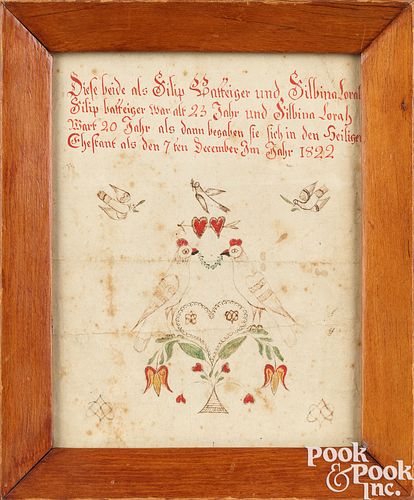 Diese beide als Filip Batteiger und Silbina Lorah
Filip batteiger war alt 23 Jahr und Silbina Lorah
Wart 20 Jahr als dann begaben sie sich in den Heiligen
Ehestant als den 7ten December Im Jahr 1822
POOK
& POOK
Inc.